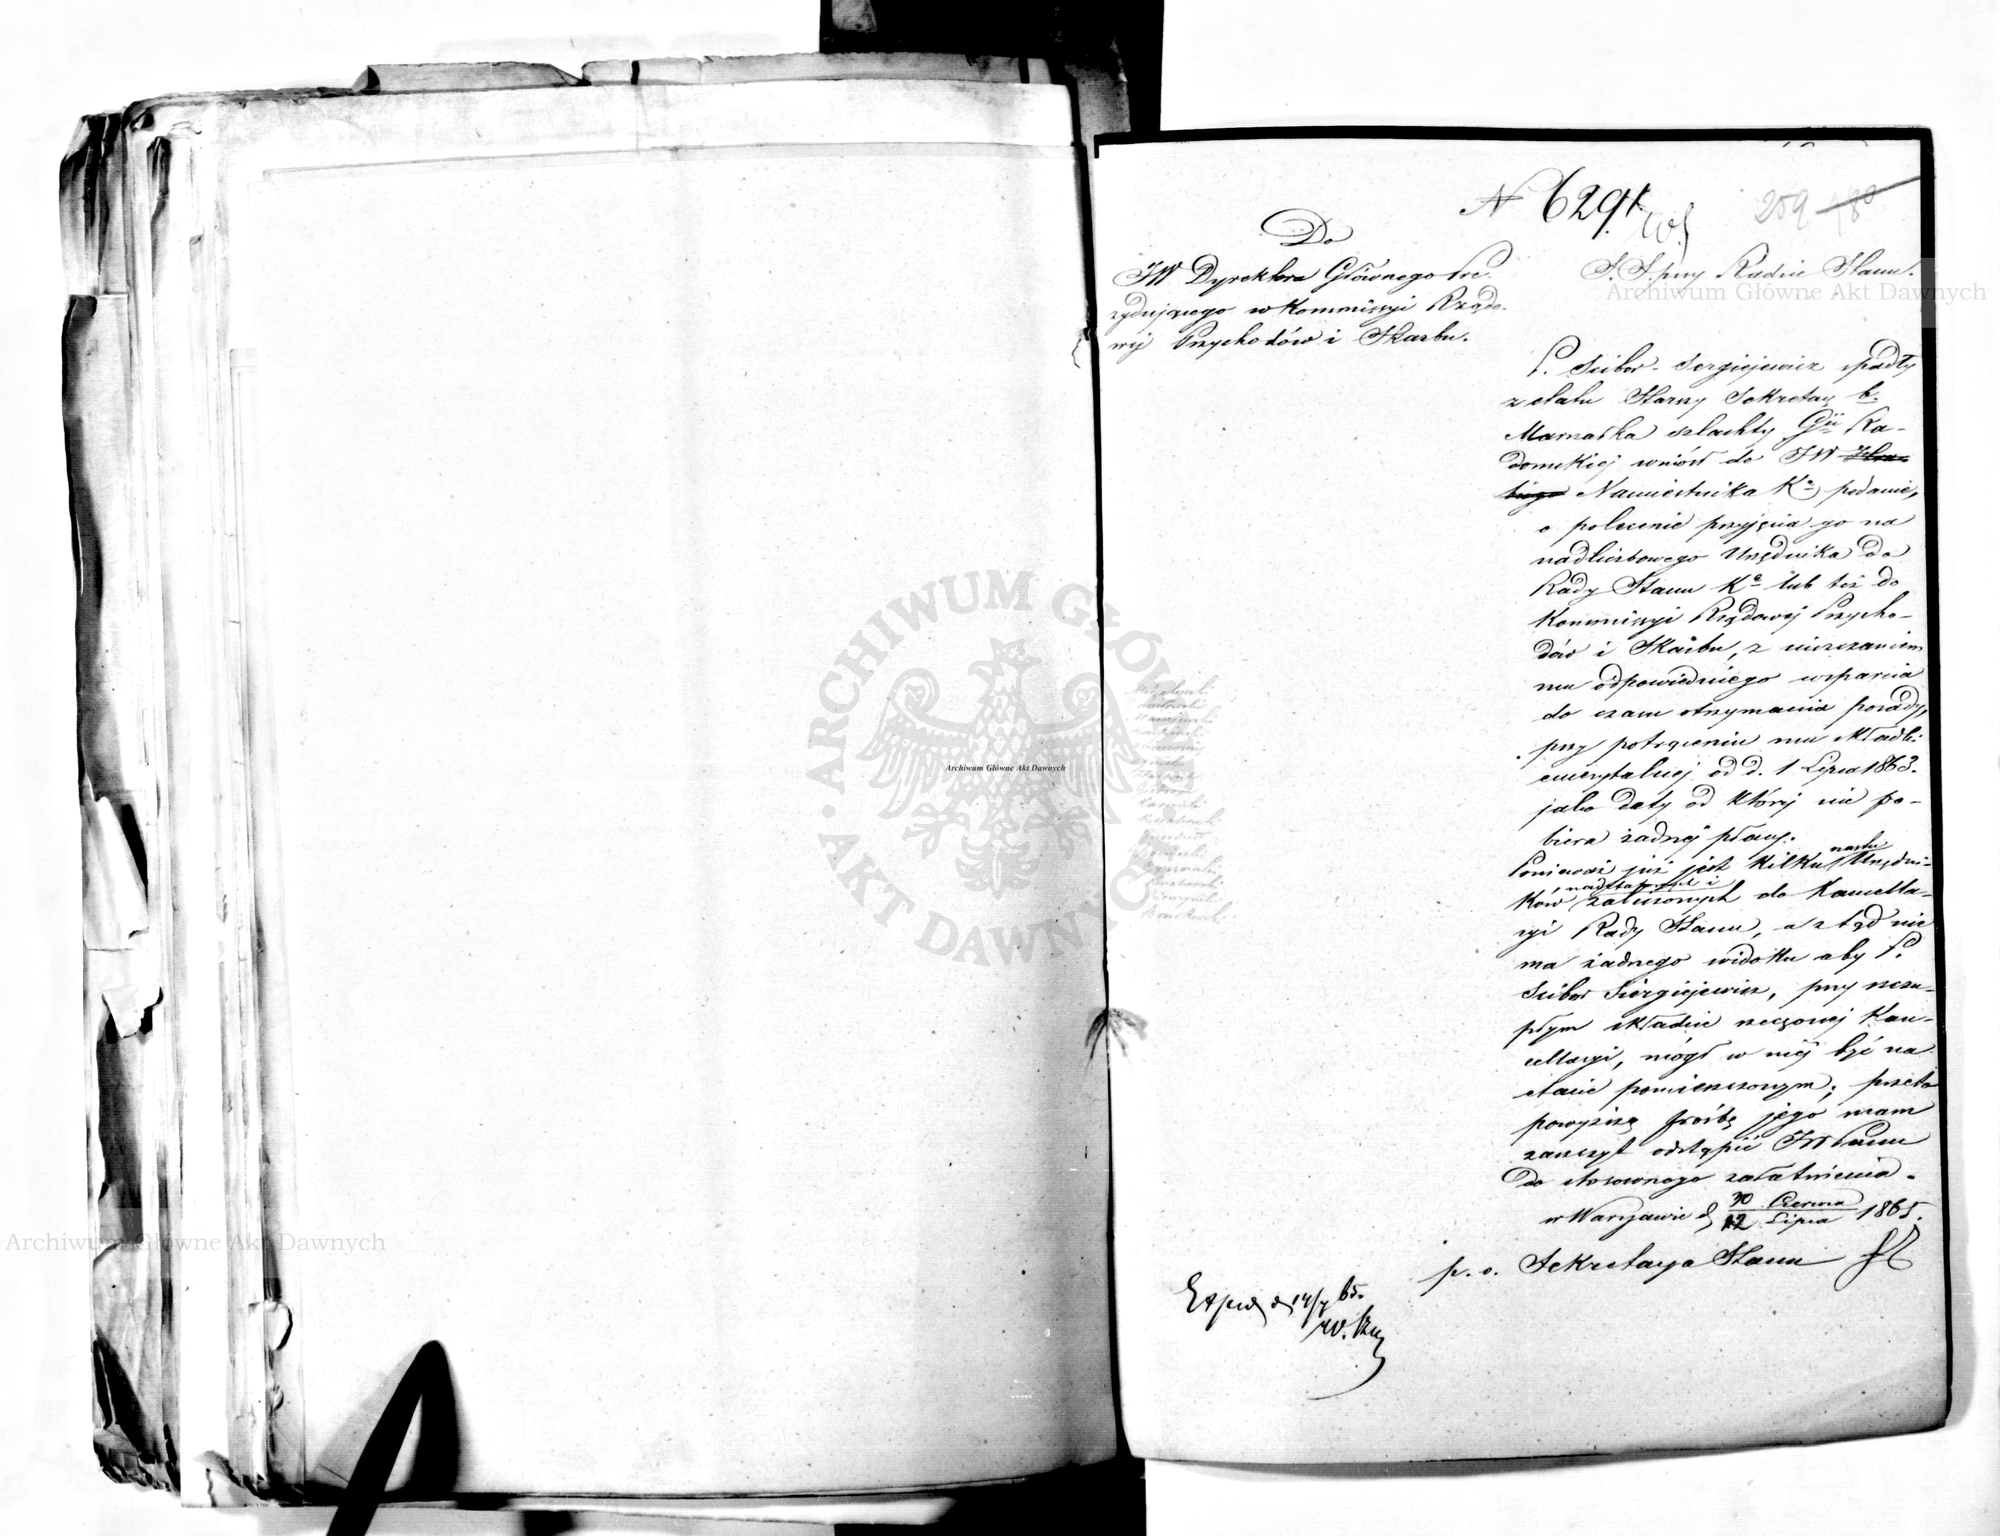 N 6291
209 480
Do
JW Dyrektora Głównego Pre-
zydującego w Kommissyi Rządo-
wéj Przychodów i Skarbu.
S. S. przy Radzie Stanu.
P. Scibor-Sergiejewicz spadły
z etatu Starszy Sekretarz b.
Marszałka szlachty Gii Ra-
domskiej wniósł do JW Hra-
biego Namiestnika Ka podanie,
o polecenie przyjęcia go na
nadliczbowego Urzędnika do
Rady Stanu Ka lub też do
Kommissyi Rządowej Przycho-
dów i Skarbu, z
mu odpowiedniego wsparcia
do czasu otrzymania posady,
przy potrąceniu mu składki
emerytalnej od d. 1 Lipca 1863.
jako daty od której nie po-
biera żadnej płacy.
Ponieważ już jest kilku Urzędni-
ków zaliczonych do Kancella-
ryi Rady Stanu, a ztąd nie
ma żadnego widoku aby P.
Scibor Siergiejewicz, przy szczu-
płym składzie rzeczonej Kan-
cellaryi, mógł w niéj być na
etacie pomieszczonym; przeto
powyższą prośbę jego mam
zaszczyt odstąpić JW Panu
do stosownego załatwienia.
w Warszawie d. 30 Czerwca / 12 Lipca 1865.
p. o. Sekretarza Stanu
d 14/7 65.
Archiwum Główne Akt Dawnych
Archiwum Główne Akt Dawnych
ARCHIWUM GŁÓWNE AKT DAWNYCH
Archiwum Główne Akt Dawnych